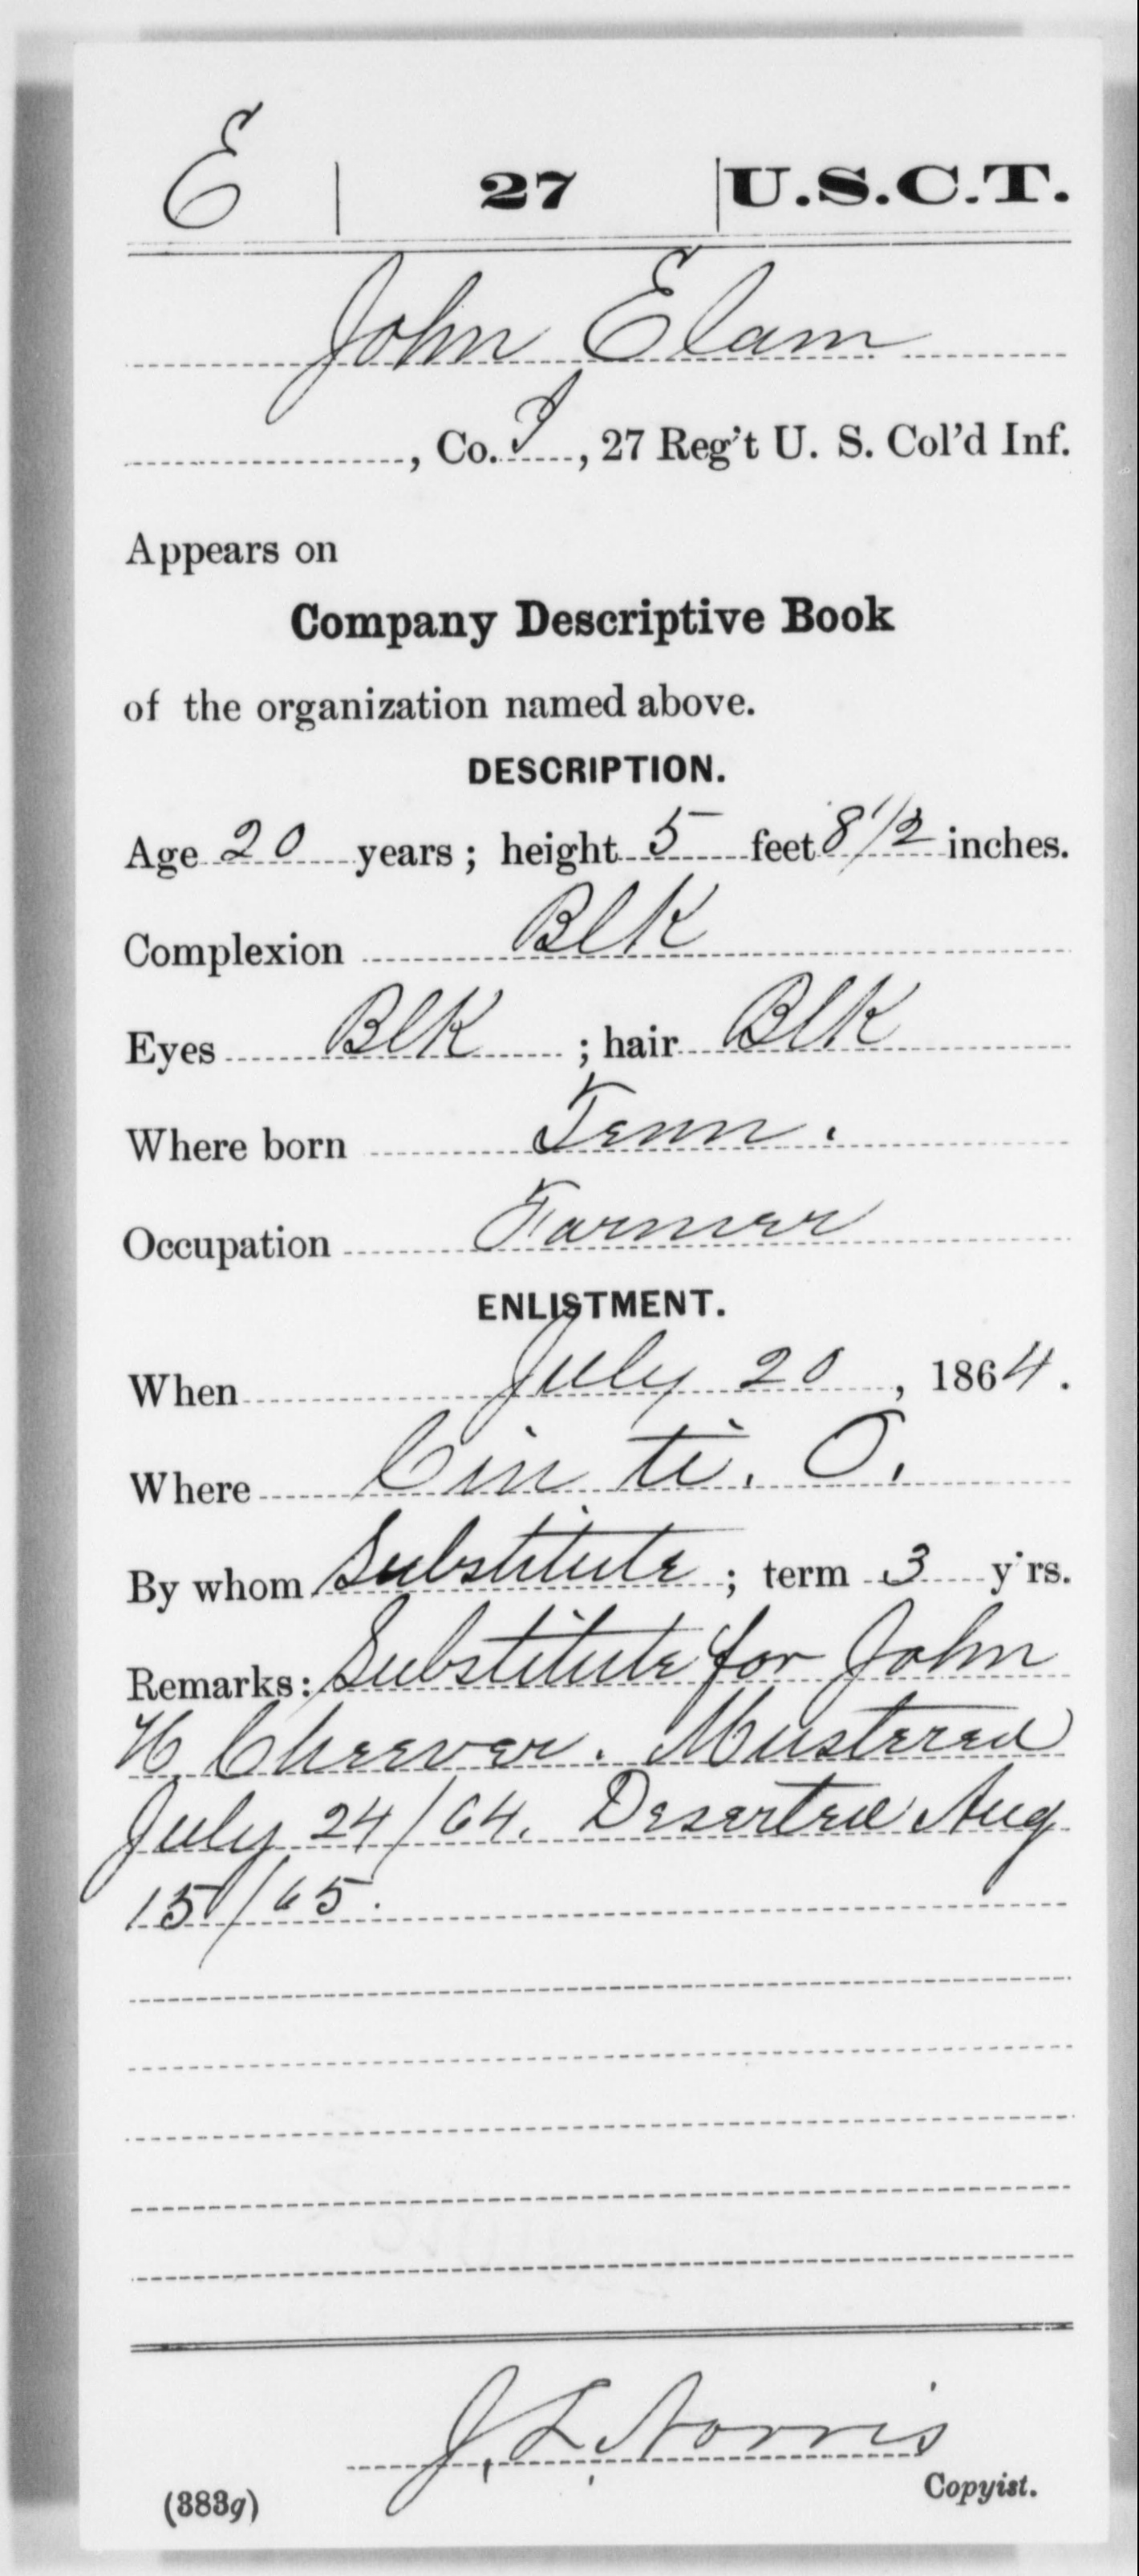 E | 27 | U.S.C.T.
John Elam
, Co. I, 27 Reg't U. S. Col'd Inf.
Appears on
Company Descriptive Book
of the organization named above.
DESCRIPTION.
Age 20 years; height 5 feet 8 1/2 inches.
Complexion Blk
Eyes Blk ; hair Blk
Where born Tenn.
Occupation Farmer
ENLISTMENT.
When July 20, 1864.
Where Cin ti. O.
By whom Substitute; term 3 y'rs.
Remarks: Substitute for John
H. Cheever. Mustered
July 24/64. Deserted Aug
15/65.
J. L. Norris
Copyist.
(383g)